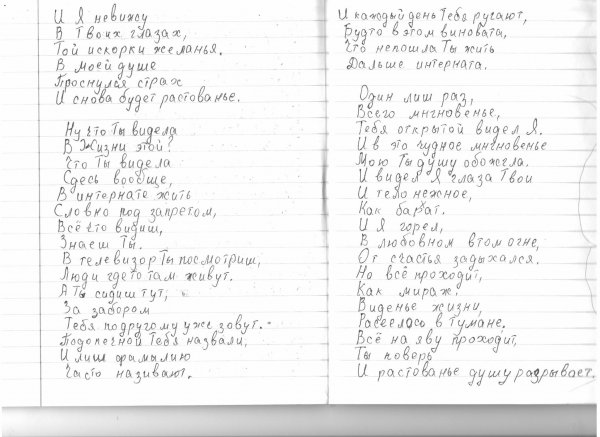 И Я невижу
В Твоих глазах,
Той искорки желанья.
В моей душе
Проснулся страх
И снова будет растованье.
Ну что Ты видела
В Жизни этой?
Что Ты видела
Сдесь вообще,
В интернате жить
Словно под запретом,
Всё что видиш,
Знаеш Ты.
В телевизор Ты посмотриш,
Люди гдето там живут.
А Ты сидиш тут,
За забором
Тебя подругому уже зовут.
Подопечной Тебя назвали,
И лиш фамылию
Часто називают.
И каждый день Тебя ругают,
Будто в этом виновата,
Что непошла Ты жить
Дальше интерната.
Один лиш раз,
Всего мнгновенье,
Тебя открытой видел Я.
И в это чудное мнгновенье
Мою Ты душу обожгла.
И видел Я глаза Твои
И тело нежное,
Как бархат.
И Я горел,
В любовном втом огне,
От счастья задыхался.
Но всё проходит,
Как мираж,
Виденье жизни,
Расеелось в Тумане.
Всё на яву проходит,
Ты поверь
И растованье душу разрывает.